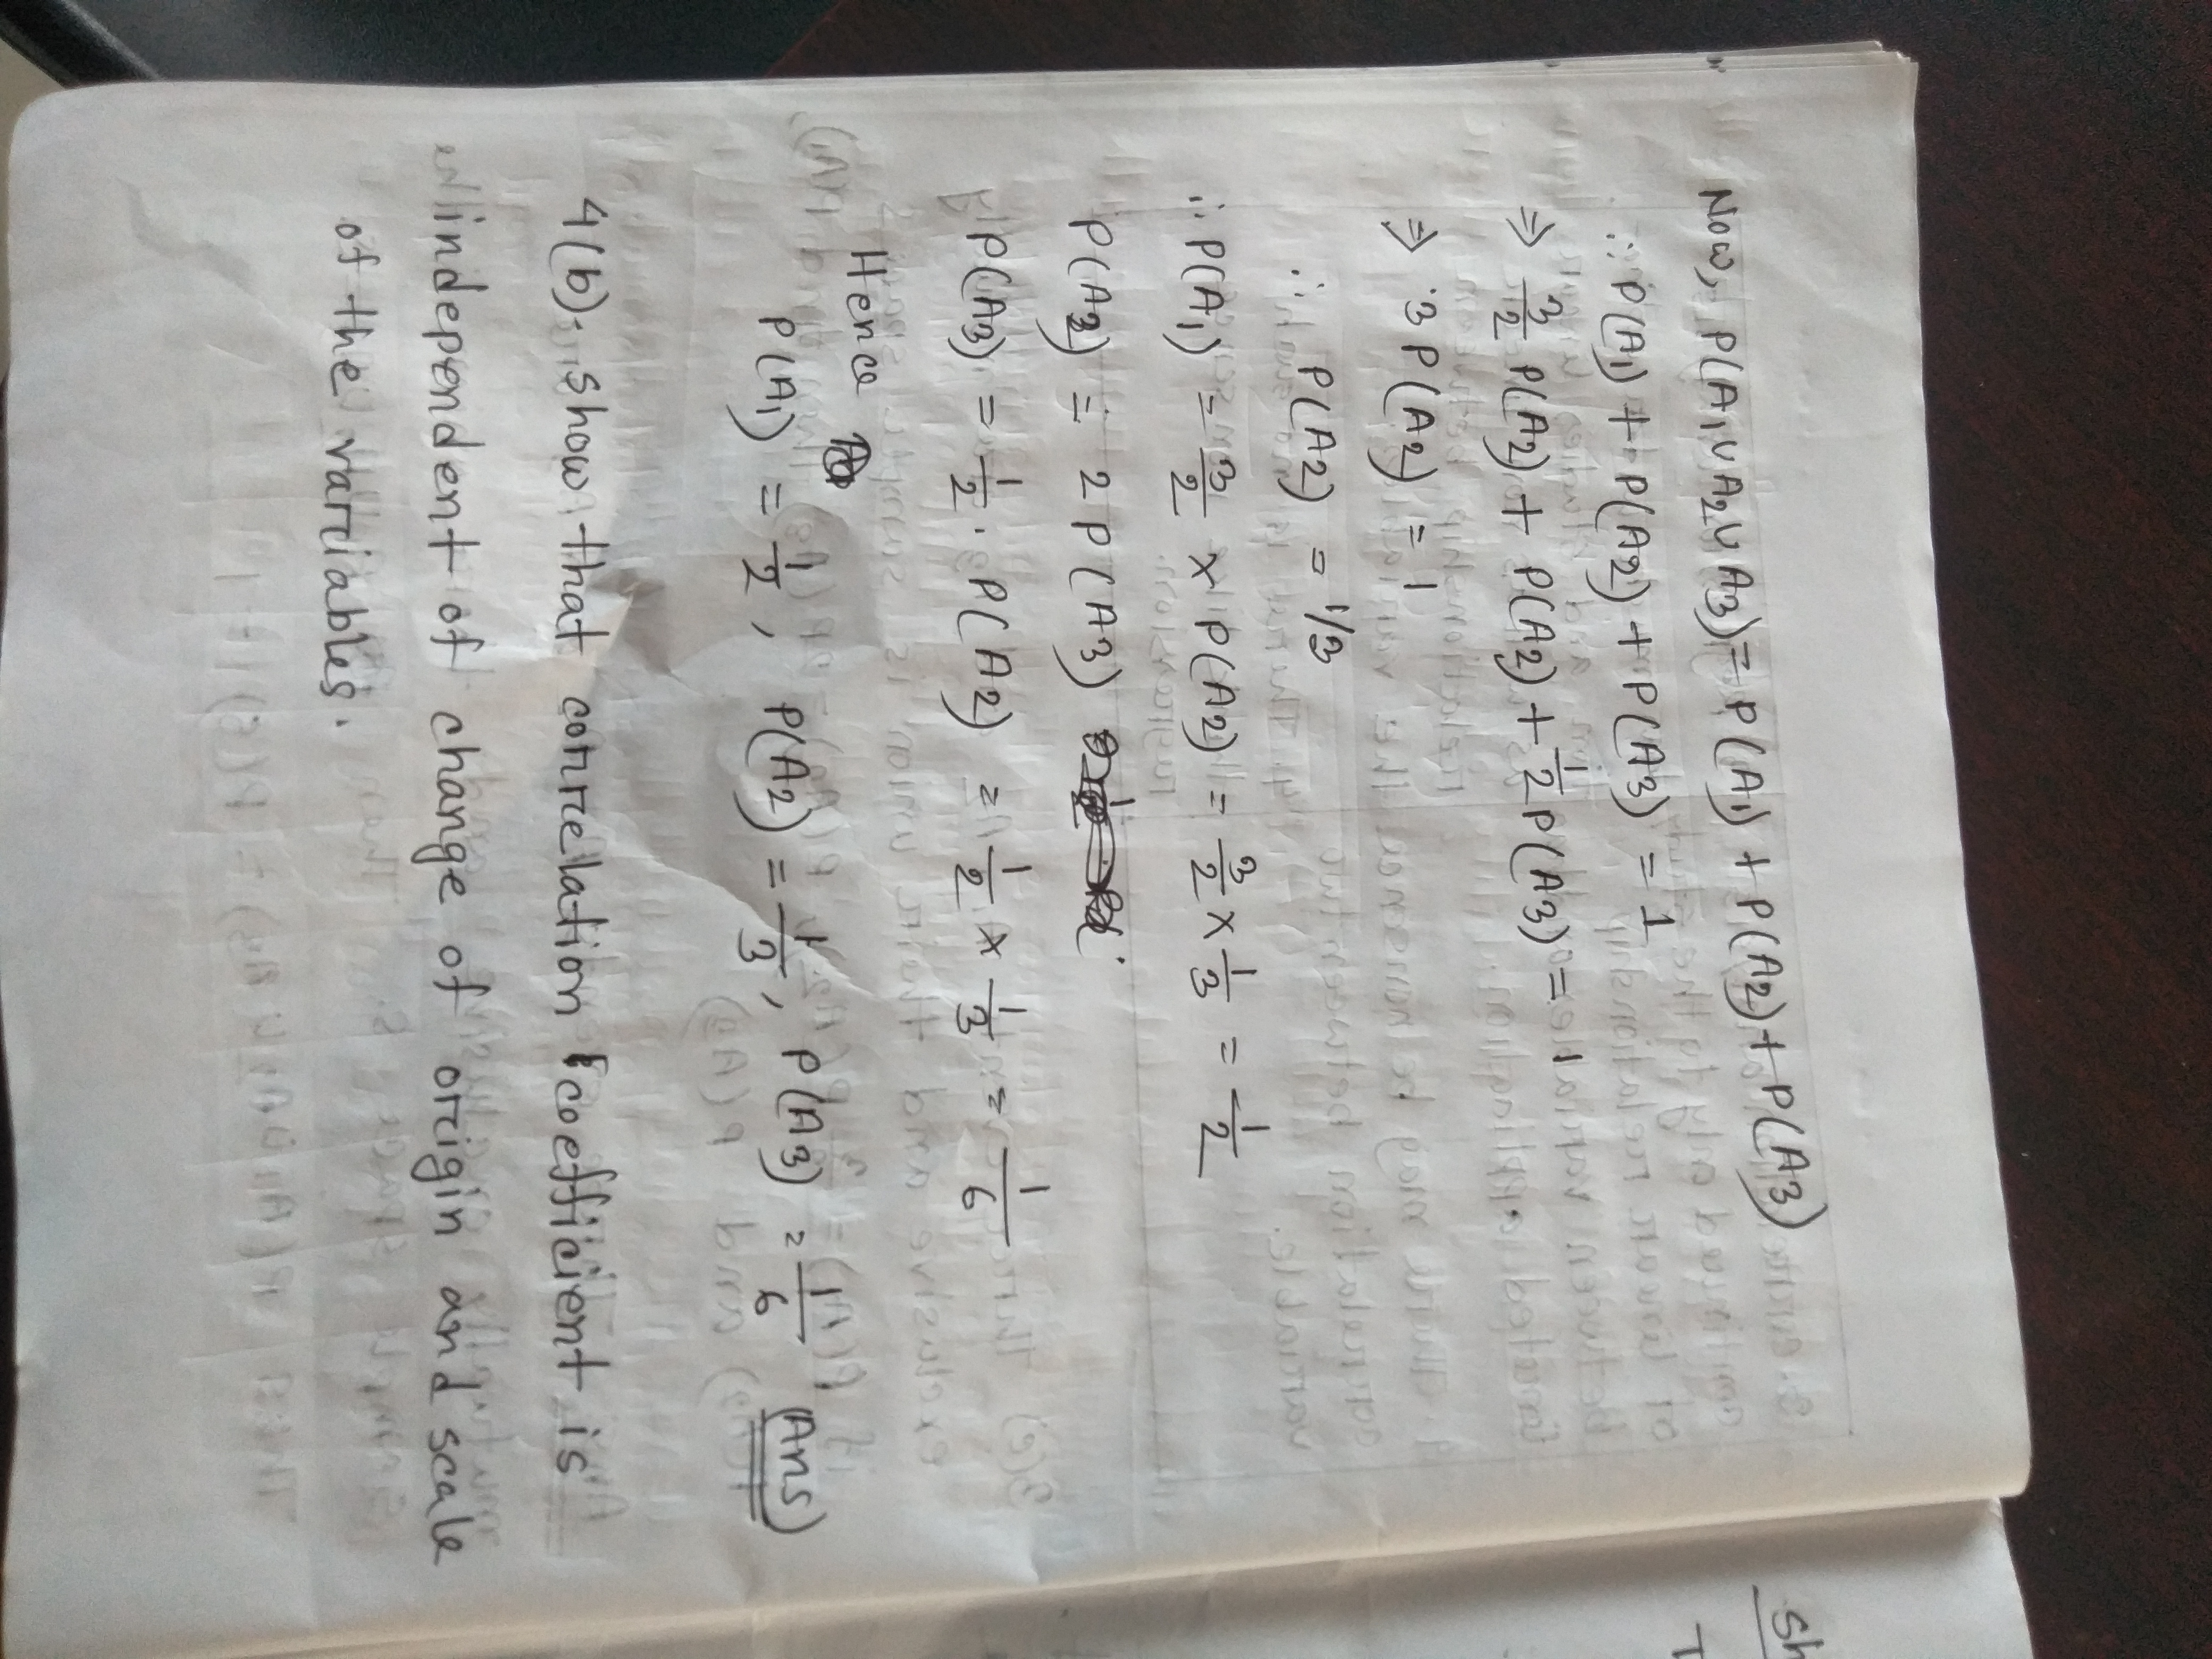 Now, P(A1∪A2∪A3) = P(A1) + P(A2) + P(A3)
∴ P(A1) + P(A2) + P(A3) = 1
⇒ 3/2 P(A2) + P(A2) + 1/2 P(A3) = 1
⇒ 3 P(A2) = 1
∴ P(A2) = 1/3
∴ P(A1) = 3/2 × P(A2) = 3/2 × 1/3 = 1/2
P(A2) = 2 P(A3)
P(A3) = 1/2 . P(A2) = 1/2 × 1/3 = 1/6
Hence
P(A1) = 1/2, P(A2) = 1/3, P(A3) = 1/6 (Ans)
4(b). Show that correlation coefficient is
independent of change of origin and scale
of the variables.
Sh
T